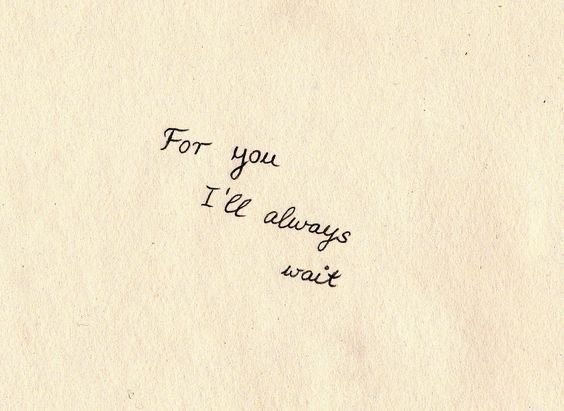 For you
I'll always
wait